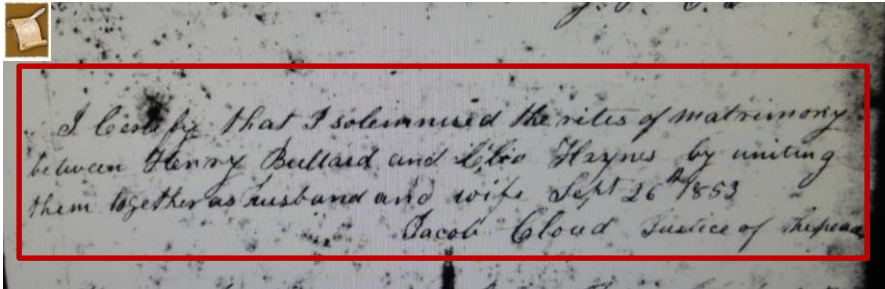 J. P. C. C
I Certify that I solemnised the rites of matrimony
between Henry Bullard and Cliо Haynes by uniting
them together as husband and wife Sept 26th 1853
Jacob Cloud Justice of the peace